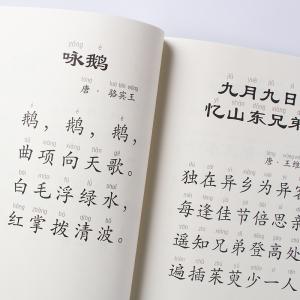 yǒng é
咏鹅
唐·骆宾王
é é é
鹅，鹅，鹅，
曲项向天歌。
白毛浮绿水，
红掌拨清波。
九月九日
忆山东兄弟
唐·王维
独在异乡为异客
每逢佳节倍思亲
遥知兄弟登高处
遍插茱萸少一人